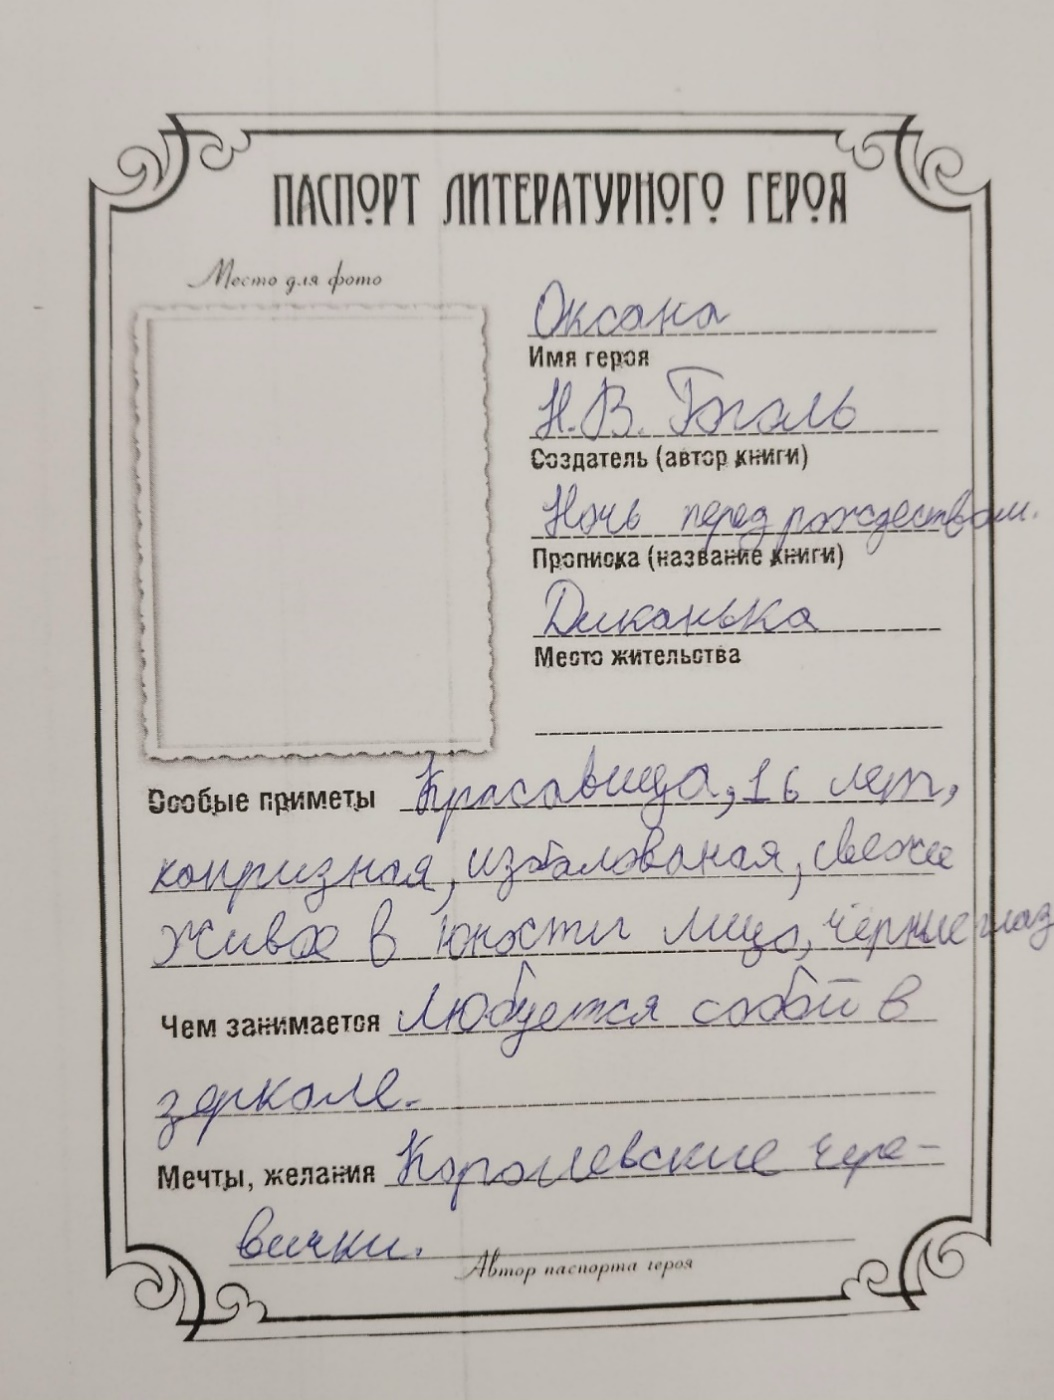 ПАСПОРТ ЛИТЕРАТУРНОГО ГЕРОЯ
Место для фото
Оксана
Имя героя
Н.В. Гоголь
Создатель (автор книги)
Ночь перед рождеством.
Прописка (название книги)
Диканька
Место жительства
Особые приметы Красавица, 16 лет,
капризная, избалованая, свежее
живое в юности лицо, чёрные глаз
Чем занимается Любуется собой в
зеркале.
Мечты, желания Королевские чере-
вички.
Автор паспорта героя